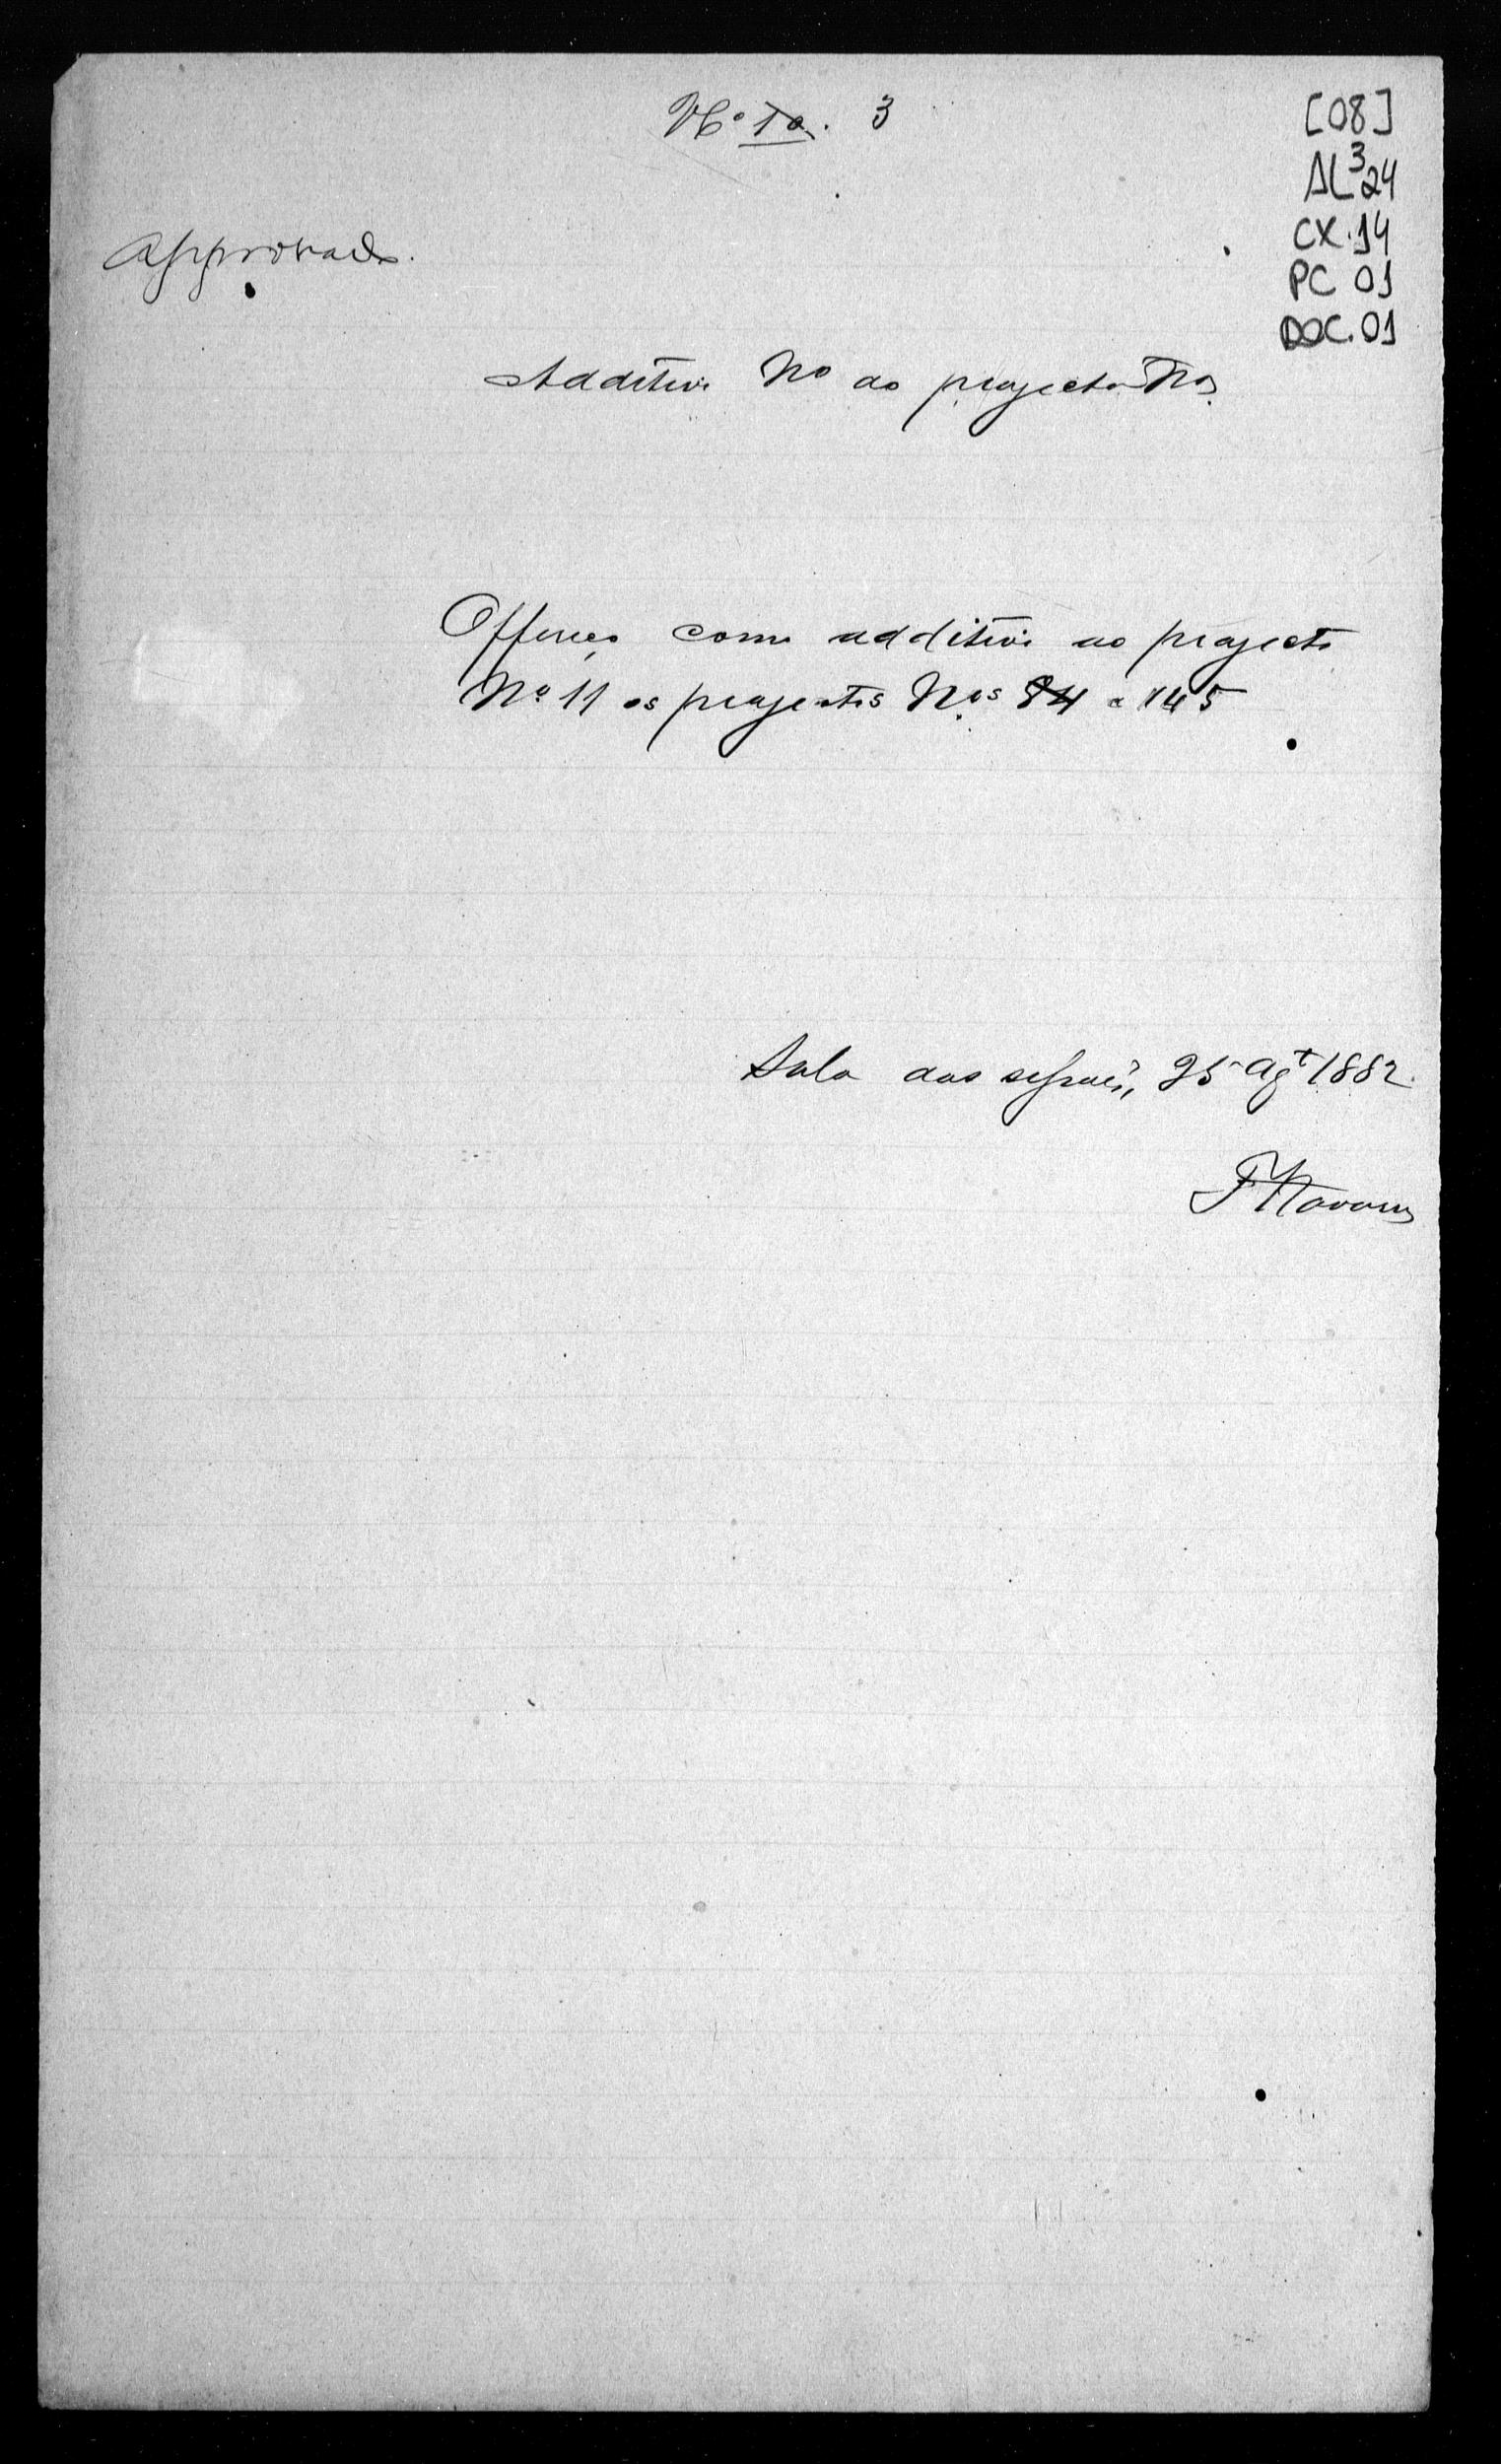 Nº 10. 3
[08]
AL 3 24
CX.14
PC 01
DOC.01
Approvado.
Additivo Nº ao projecto Nº
Offereço como additivo ao projecto
Nº 11 os projectos Nos 84 e 145
Sala das sessões, 25 Agto 1882
F Navarro